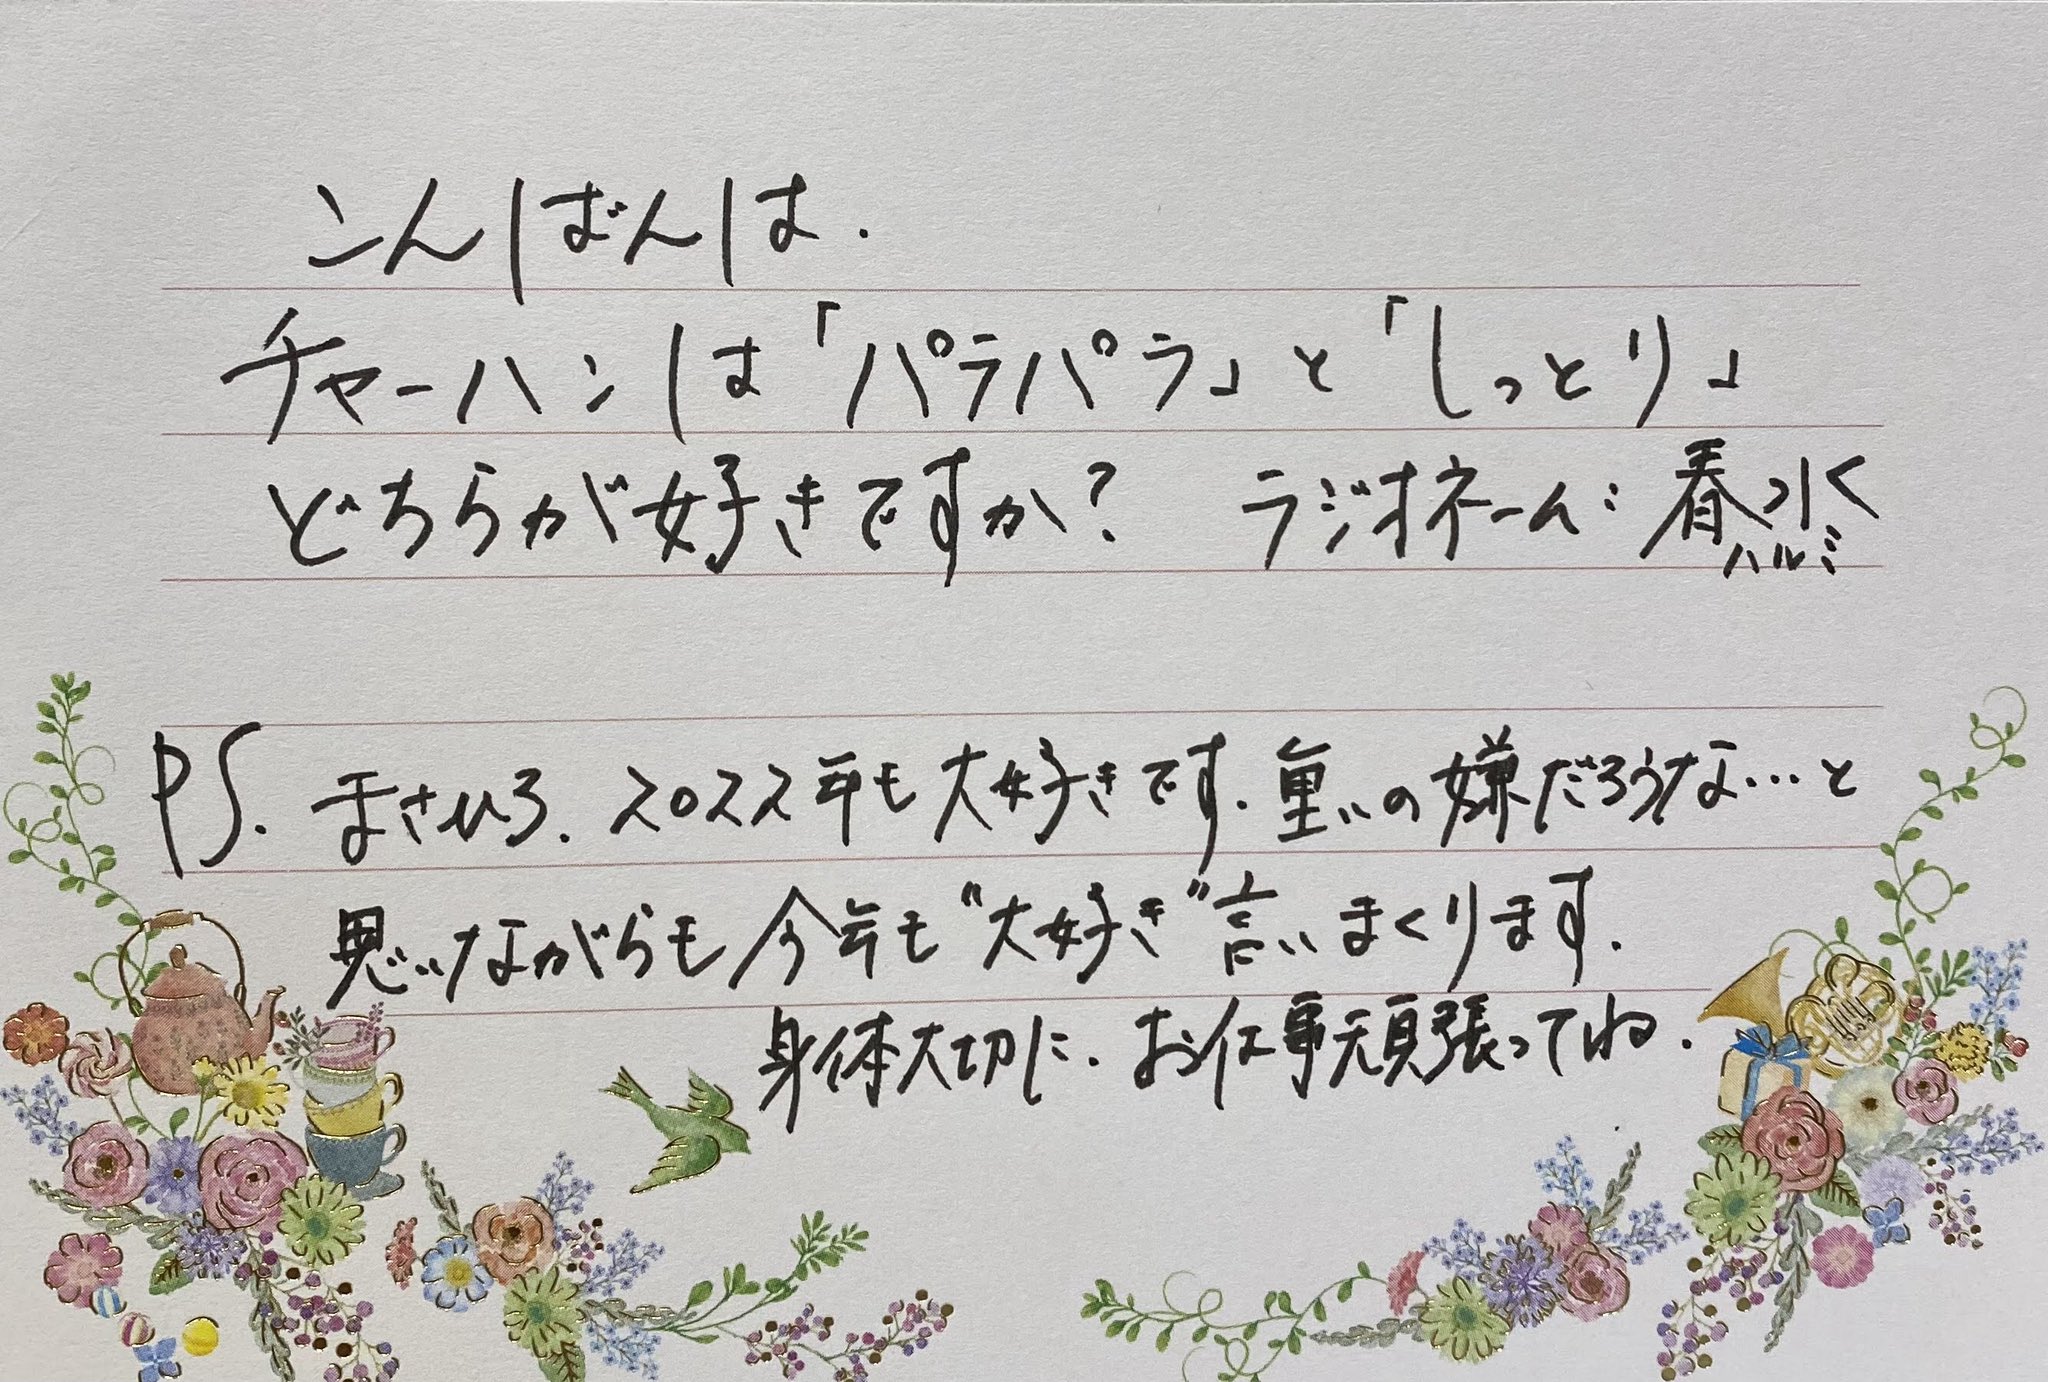 こんばんは.
チャーハンは「パラパラ」と「しっとり」
どちらが好きですか? ラジオネーム: 春水
ハルミ
PS. まさひろ. 2022年も大好きです. 重いの嫌だろうな…と
思いながらも今年も"大好き"言いまくります.
身体大切に. お仕事頑張ってね.